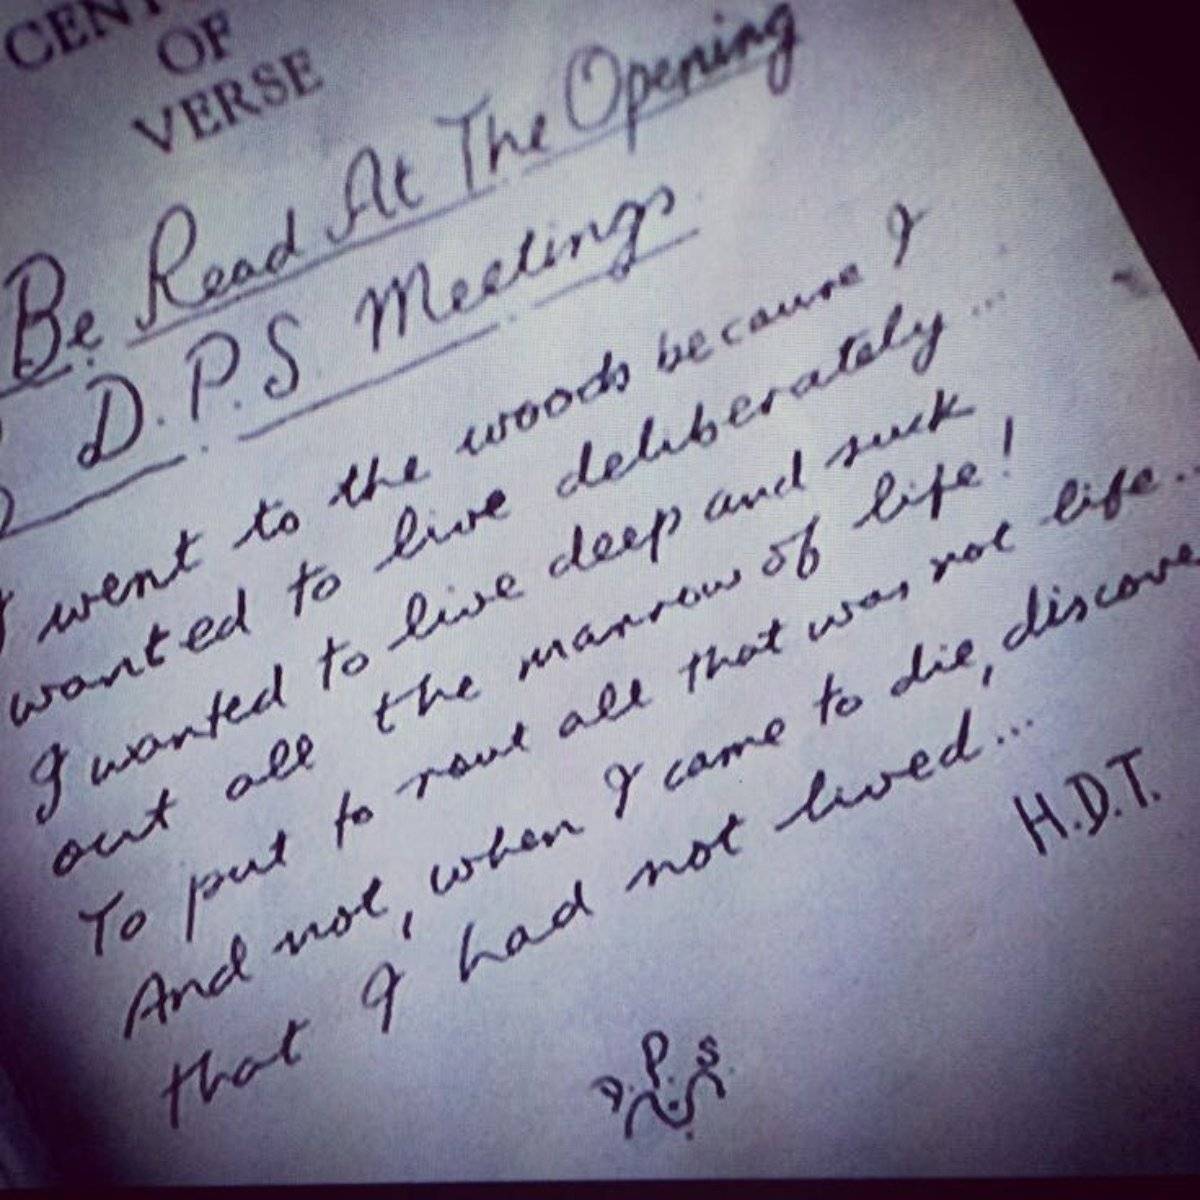 CENT
OF
VERSE
Be Read At The Opening
D.P.S Meetings
I went to the woods because I
wanted to live deliberately...
I wanted to live deep and suck
out all the marrow of life!
To put to rout all that was not life..
And not, when I came to die, discove
that I had not lived...
H.D.T.
D.P.S.